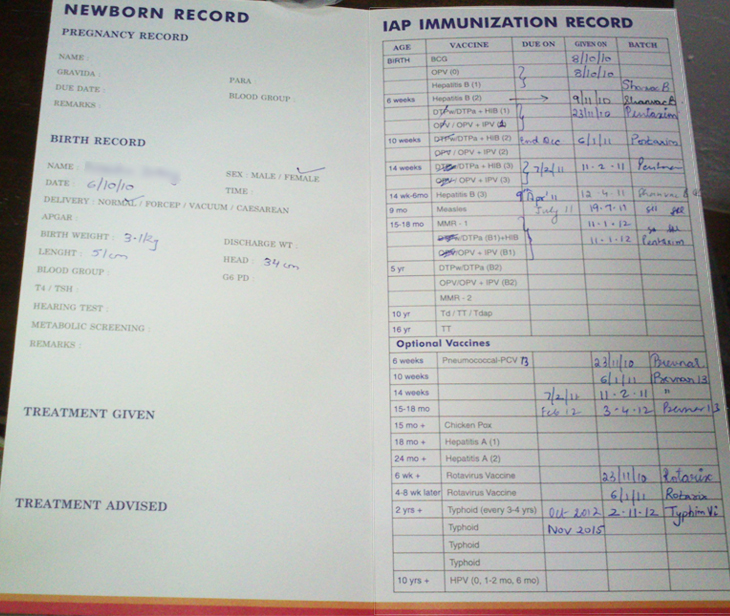 NEWBORN RECORD
PREGNANCY RECORD
NAME :
GRAVIDA : PARA
DUE DATE : BLOOD GROUP :
REMARKS :
BIRTH RECORD
NAME : SEX : MALE / FEMALE
DATE : 6/10/10 TIME :
DELIVERY : NORMAL / FORCEP / VACUUM / CAESAREAN
APGAR :
BIRTH WEIGHT : 3.1kg DISCHARGE WT :
LENGHT : 51cm HEAD : 34 cm
BLOOD GROUP : G6 PD :
T4 / TSH :
HEARING TEST :
METABOLIC SCREENING :
REMARKS :
TREATMENT GIVEN
TREATMENT ADVISED
IAP IMMUNIZATION RECORD
AGE VACCINE DUE ON GIVEN ON BATCH
BIRTH BCG 8/10/10
OPV (0) 8/10/10
Hepatitis B (1)
6 weeks Hepatitis B (2) 9/11/10
DTPw/DTPa + HIB (1) 23/11/10 Pentaxim
OPV / OPV + IPV (1)
10 weeks DTPw/DTPa + HIB (2) 2nd Dec 6/1/11 Pentaxim
OPV / OPV + IPV (2)
14 weeks DTPw/DTPa + HIB (3) 7/2/11 11-2-11
OPV / OPV + IPV (3)
14 wk-6mo Hepatitis B (3) Apr'11 12-4-11
9 mo Measles July 11 19-7-11
15-18 mo MMR - 1 11-1-12
DTPw/DTPa (B1)+HIB 11-1-12 Pentaxim
OPV/OPV + IPV (B1)
5 yr DTPw/DTPa (B2)
OPV/OPV + IPV (B2)
MMR - 2
10 yr Td / TT / Tdap
16 yr TT
Optional Vaccines
6 weeks Pneumococcal-PCV 13 23/11/10
10 weeks 6/1/11
14 weeks 7/2/11 11-2-11 "
15-18 mo Feb 12 3-4-12
15 mo + Chicken Pox
18 mo + Hepatitis A (1)
24 mo + Hepatitis A (2)
6 wk + Rotavirus Vaccine 23/11/10 Rotarix
4-8 wk later Rotavirus Vaccine 6/1/11 Rotarix
2 yrs + Typhoid (every 3-4 yrs) Oct 2012 2-11-12 Typhim Vi
Typhoid Nov 2015
Typhoid
Typhoid
10 yrs + HPV (0, 1-2 mo, 6 mo)